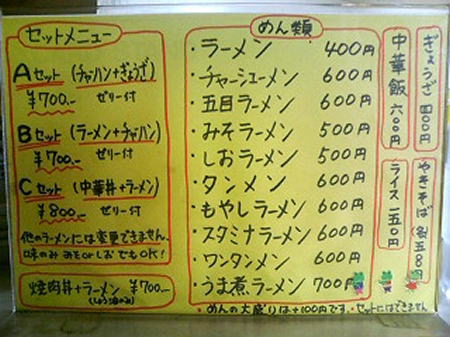 セットメニュー
Aセット(チャハン+ぎょうざ)
¥700.- ゼリー付
Bセット(ラーメン+チャハン)
¥700.- ゼリー付
Cセット(中華丼+ラーメン)
¥800.- ゼリー付
他のラーメンには変更できません。
味のみ みそorしお でもOK!
焼肉丼+ラーメン ¥700.-
(しょう油のみ)
めん類
・ラーメン 400円
・チャーシューメン 600円
・五目ラーメン 600円
・みそラーメン 500円
・しおラーメン 500円
・タンメン 600円
・もやしラーメン 600円
・スタミナラーメン 600円
・ワンタンメン 600円
・うま煮ラーメン 700円
めんの大盛りは+100円です。セットにはできません
中華飯 六〇〇円
ライス 一五〇円
ぎょうざ 四〇〇円
やきそば 五〇円